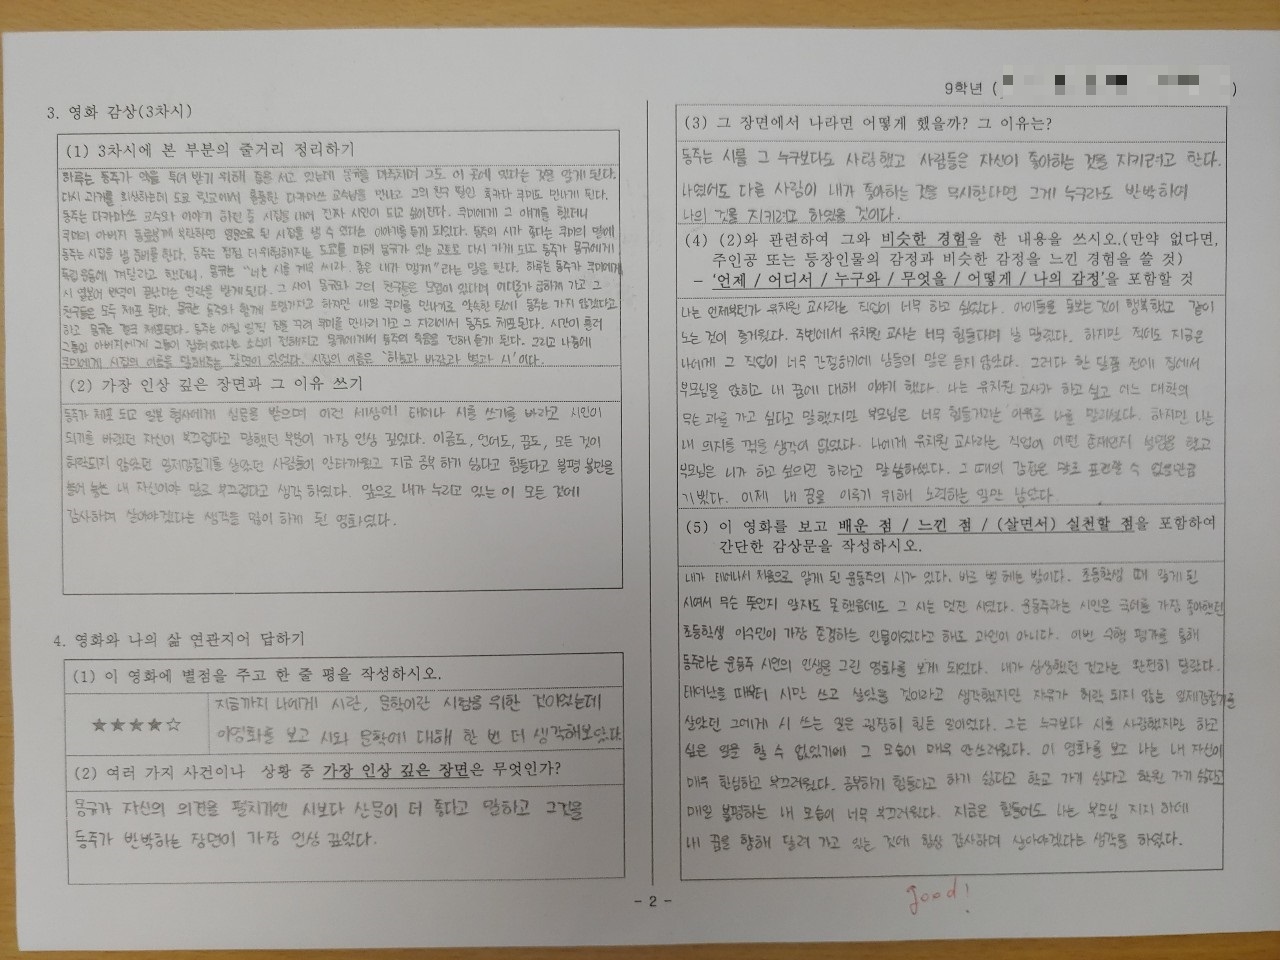 9학년 (
)
3. 영화 감상(3차시)
(1) 3차시에 본 부분의 줄거리 정리하기
하루는 동주가 약을 투여 받기 위해 줄을 서고 있는데 몽규를 마주치며 그도 이 곳에 있다는 것을 알게 된다.
다시 과거를 회상하는데 도쿄 릿쿄에서 훌륭한 다카마쓰 교수님을 만나고 그의 친구 딸인 후카다 쿠미도 만나게 된다.
동주는 다카마쓰 교수와 이야기 하던 중 시집을 내어 진짜 시인이 되고 싶어진다. 쿠미에게 그 얘기를 했더니
쿠미의 아버지 동료분께 부탁하면 영문으로 된 시집을 낼 수 있다는 이야기를 듣게 되었다. 동주의 시가 좋다는 쿠미의 말에
동주는 시집을 낼 준비를 한다. 동주는 점점 더 위험해지는 도쿄를 피해 몽규가 있는 교토로 다시 가게 되고 동주가 몽규에게
독립운동에 껴달라고 했더니, 몽규는 "너는 시를 계속 써라. 총은 내가 맬게"라는 말을 한다. 하루는 동주가 쿠미에게
시 일본어 번역이 끝난다는 연락을 받게 된다. 그 사이 몽규와 그의 친구들은 모였이 있다며 어디론가 급하게 가고 그
친구들은 모두 체포 된다. 몽규는 동주와 함께 도망가자고 하지만 내일 쿠미를 만나기로 약속한 탓에 동주는 가지 않겠다고
하고 몽규는 결국 체포된다. 동주는 아침 일찍 짐을 꾸려 쿠미를 만나러 가고 그 자리에서 동주도 체포된다. 시간이 흘러
그들의 아버지에게 그들이 잡혀 있다는 소식이 전해지고 몽규에게서 동주의 죽음을 전해 듣게 된다. 그리고 나중에
쿠미에게 시집의 이름을 말해주는 장면이 있었다. 시집의 이름은 '하늘과 바람과 별과 시'이다.
(2) 가장 인상 깊은 장면과 그 이유 쓰기
동주가 체포 되고 일본 형사에게 심문을 받으며 이런 세상에 태어나 시를 쓰기를 바라고 시인이
되기를 바랬던 자신이 부끄럽다고 말했던 부분이 가장 인상 깊었다. 이름도, 언어도, 꿈도, 모든 것이
허락되지 않았던 일제강점기를 살았던 사람들이 안타까웠고 지금 공부 하기 싫다고 힘들다고 불평 불만을
늘어 놓는 내 자신이야 말로 부끄럽다고 생각 하였다. 앞으로 내가 누리고 있는 이 모든 것에
감사하며 살아야겠다는 생각을 많이 하게 된 영화였다.
4. 영화와 나의 삶 연관지어 답하기
(1) 이 영화에 별점을 주고 한 줄 평을 작성하시오.
★★★★☆
지금까지 나에게 시란, 문학이란 시험을 위한 것이었는데
이영화를 보고 시와 문학에 대해 한 번 더 생각해보았다.
(2) 여러 가지 사건이나 상황 중 가장 인상 깊은 장면은 무엇인가?
몽규가 자신의 의견을 펼치기엔 시보다 산문이 더 좋다고 말하고 그것을
동주가 반박하는 장면이 가장 인상 깊었다.
(3) 그 장면에서 나라면 어떻게 했을까? 그 이유는?
동주는 시를 그 누구보다도 사랑했고 사람들은 자신이 좋아하는 것을 지키려고 한다.
나였어도 다른 사람이 내가 좋아하는 것을 무시한다면 그게 누구라도 반박하여
나의 것을 지키려고 하였을 것이다.
(4) (2)와 관련하여 그와 비슷한 경험을 한 내용을 쓰시오.(만약 없다면,
주인공 또는 등장인물의 감정과 비슷한 감정을 느낀 경험을 쓸 것)
- '언제 / 어디서 / 누구와 / 무엇을 / 어떻게 / 나의 감정'을 포함할 것
나는 언제부턴가 유치원 교사라는 직업이 너무 하고 싶었다. 아이들을 돌보는 것이 행복했고 같이
노는 것이 즐거웠다. 주변에서 유치원 교사는 너무 힘들다며 날 말렸다. 하지만 적어도 지금은
나에게 그 직업이 너무 간절하기에 남들의 말은 듣지 않았다. 그러다 한 달쯤 전에 집에서
부모님을 앉히고 내 꿈에 대해 이야기 했다. 나는 유치원 교사가 하고 싶고 어느 대학의
무슨 과를 가고 싶다고 말했지만 부모님은 너무 힘들거라는 이유로 나를 말리셨다. 하지만 나는
내 의지를 꺾을 생각이 없었다. 나에게 유치원 교사라는 직업이 어떤 존재인지 설명을 했고
부모님은 니가 하고 싶으면 하라고 말씀하셨다. 그 때의 감정은 말로 표현할 수 없을만큼
기뻤다. 이제 내 꿈을 이루기 위해 노력하는 일만 남았다.
(5) 이 영화를 보고 배운 점 / 느낀 점 / (살면서) 실천할 점을 포함하여
간단한 감상문을 작성하시오.
내가 태어나서 처음으로 알게 된 윤동주의 시가 있다. 바로 별 헤는 밤이다. 초등학생 때 알게 된
시여서 무슨 뜻인지 알지도 못했음에도 그 시는 멋진 시였다. 윤동주라는 시인은 국어를 가장 좋아했던
초등학생 이수민이 가장 존경하는 인물이었다고 해도 과언이 아니다. 이번 수행 평가를 통해
동주라는 윤동주 시인의 인생을 그린 영화를 보게 되었다. 내가 상상했던 것과는 완전히 달랐다.
태어났을 때부터 시만 쓰고 살았을 것이라고 생각했지만 자유가 허락 되지 않는 일제강점기를
살았던 그에게 시 쓰는 일은 굉장히 힘든 일이었다. 그는 누구보다 시를 사랑했지만 하고
싶은 일을 할 수 없었기에 그 모습이 매우 안쓰러웠다. 이 영화를 보고 나는 내 자신이
매우 한심하고 부끄러웠다. 공부하기 힘들다고 하기 싫다고 학교 가기 싫다고 학원 가기 싫다고
매일 불평하는 내 모습이 너무 부끄러웠다. 지금은 힘들어도 나는 부모님 지지 하에
내 꿈을 향해 달려 가고 있는 것에 항상 감사하며 살아야겠다는 생각을 하였다.
good!
- 2 -